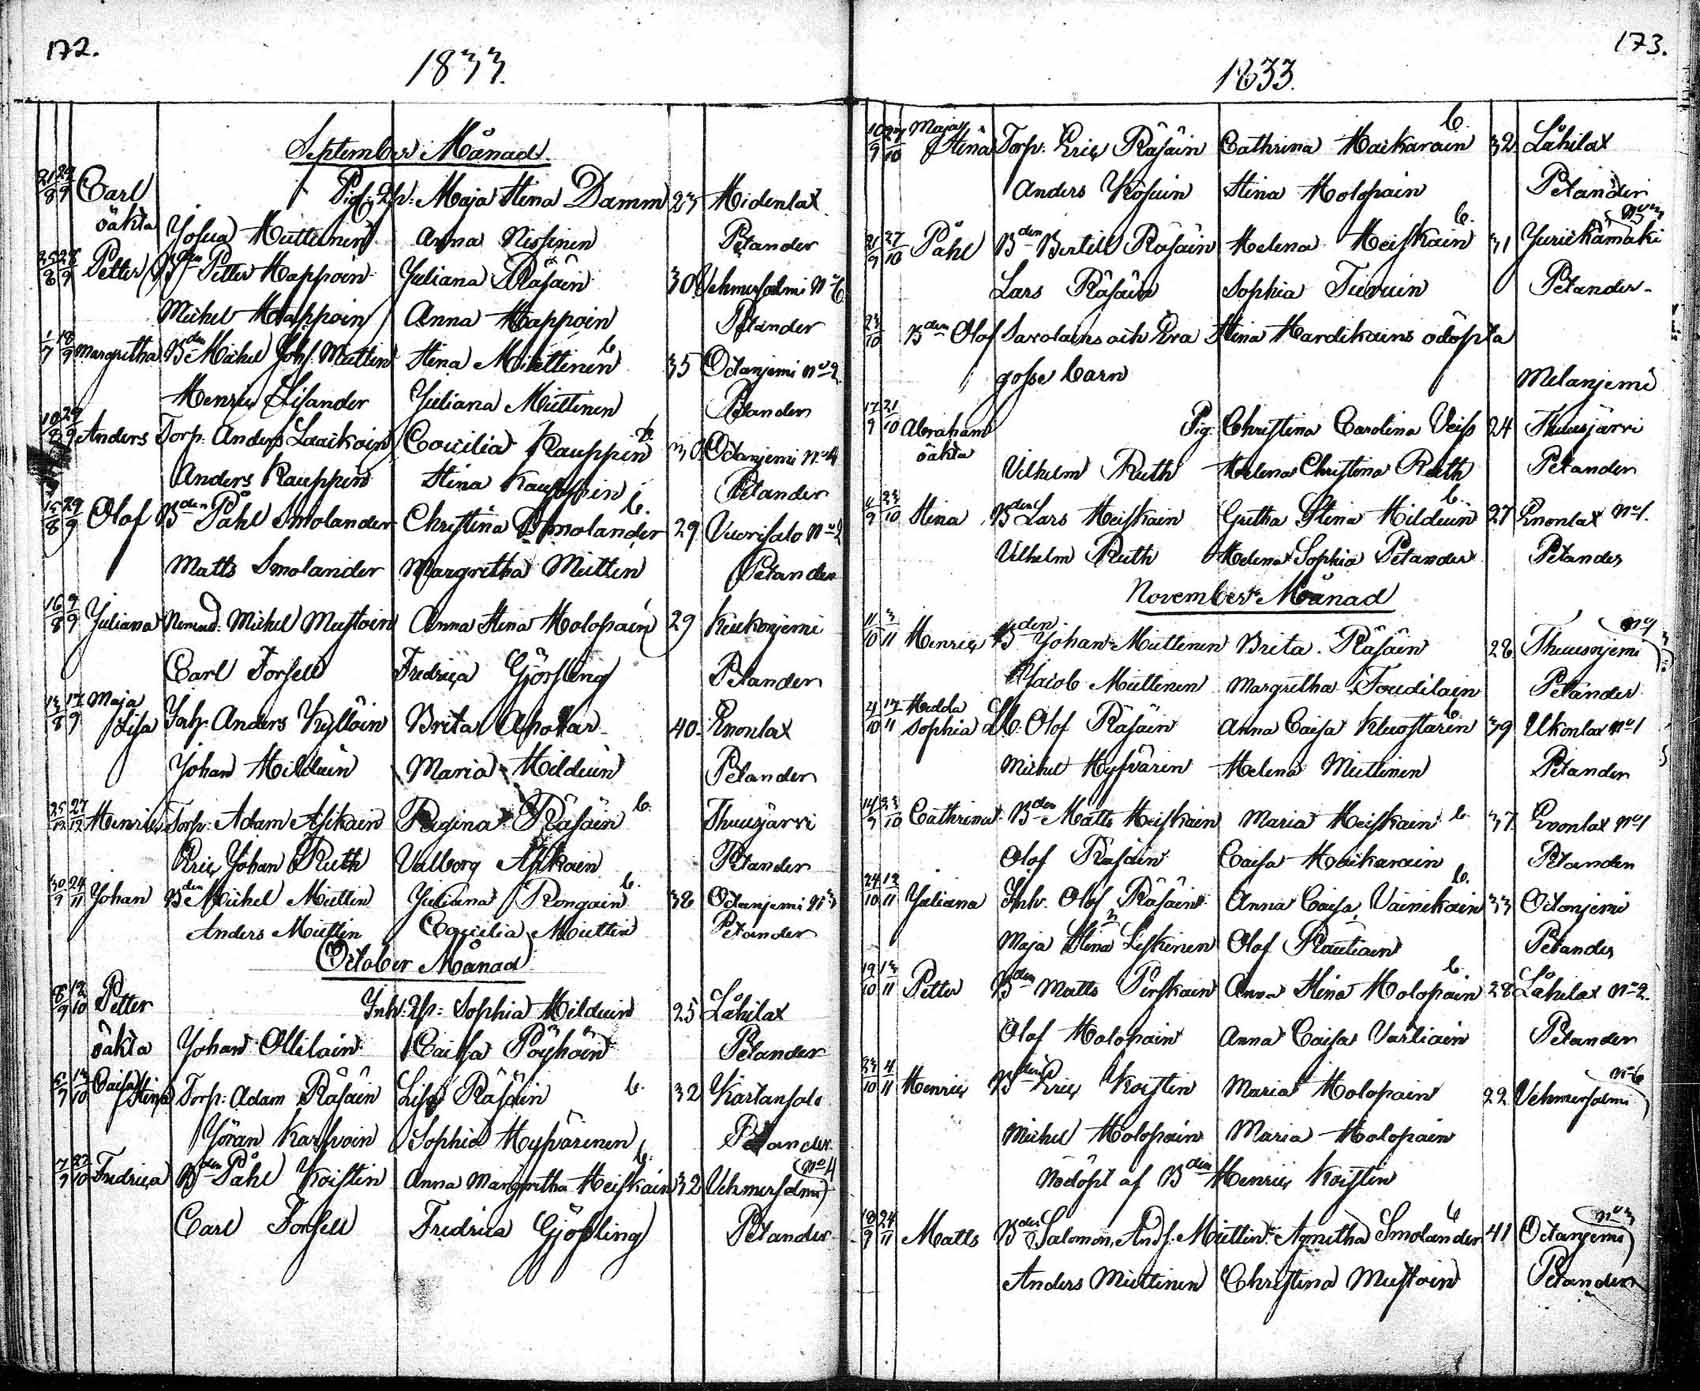 172.
1833.
September Månad
21/8 29/9 Carl Pig. Maja Stina Damm 23 Hidenlax
öäkta Josua Miettinen Anna Nissinen Petander
25/8 Petter Bden Petter Happoin Juliana Räsäin 30 Vehmersalmi No 6
Michel Happoin Anna Happoin Petander
Margretha Bden Michel Johs. Miettin Stina Miettinen b. 35 Octanjemi No 2
Henric Lisander Juliana Miettinen Petander
29/9 Anders Torp. Anders Laackoin Coecilia Kauppin b. 30 Octanjemi No 4
Anders Kauppin Stina Kauppin Petander
15/8 29/9 Olof Bden Påhl Smolander Christina Smolander b. 29 Vuorisalo No 2
Matts Smolander Margretha Miettin Petander
16/8 Juliana Michel Mustoin Anna Stina Holopain 29 Keickonjemi
Carl Forsell Fredrica Gjösling Petander
17/9 Maja Lisa Inh. Anders Kyllöin Brita 40 Enonlax
Johan Hilduin Maria Hilduin Petander
25/12 27/12 Henric Torp. Adam Asikain Regina Räsäin b. Thuusjärvi
Eric Johan Ruth Valborg Asikain Petander
30/9 24/11 Johan Bden Michel Miettin Juliana Rongain b. 38 Octanjemi No 3
Anders Miettin Coecilia Miettin Petander
October Månad
8/9 12/10 Petter Inh. Sophia Hilduin 25 Låhilax
öäkta Johan Ollilain Caisa Pöyhöin Petander
13/10 Caisa Stina Torp. Adam Räsäin Lisa Räsäin b. 32 Kartansalo
Jöran Karhvoin Sophia Hyfvärinen Petander
7/9 22/10 Fredrica Bden Påhl Koistin Anna Margretha Heiskain b. 32 Vehmersalmi No 4
Carl Forsell Fredrica Gjösling Petander
173.
1833.
10/9 27/10 Maja Stina Torp. Eric Räsäin Cathrina Hackarain b. 32 Låhilax
Anders Kosuin Stina Holopain Petander
21/9 27/10 Påhl Bden Bertill Räsäin Helena Heiskain b. 31 Jurickamäki
Lars Räsäin Sophia Petander
23/10 Bden Olof Savolains och Eva Stina Hardikains odöpta
gosse barn Melanjemi
17/9 21/10 Abraham Pig. Christina Carolina Veiss 24 Thuusjärvi
öäkta Vilhelm Ruth Helena Christina Ruth Petander
Stina Bden Lars Heiskain Gretha Stina Hilduin b. 27 Enonlax No 1.
Vilhelm Ruth Helena Sophia Petander Petander
November Månad
11/10 3/11 Henric Bden Johan Miettinen Brita Räsäin 28 Thuusnjemi
Jacob Miettinen Margretha Toudilain Petander
4/10 17/11 Hedda Sophia Olof Räsäin Anna Caisa b. 39 Ukonlax No 1
Michel Hyfvärin Helena Miettinen Petander
14/9 23/10 Cathrina Bden Matts Heiskain Maria Heiskain b. 37 Enonlax No 1
Olof Räsäin Caisa Hackarain Petander
24/10 12/11 Juliana Inh. Olof Räsäin Anna Caisa Vainikain b. 33 Octonjemi
Maja Stina Leskinen Olof Rautiain Petander
19/10 13/11 Petter Bden Matts Pirskain Anna Stina Holopain b. 28 Låhilax No 2.
Olof Holopain Anna Caisa Vartiain Petander
23/10 4/11 Henric Bden Eric Koistin Maria Holopain 22 Vehmersalmi No 6
Michel Holopain Maria Holopain
Nödöpt af Bden Henric Koistin
18/9 24/11 Matts Bden Salomon Ands. Miettin Agnetha Smolander b. 41 Octanjemi No 3
Anders Miettinen Christina Mustoin Petander